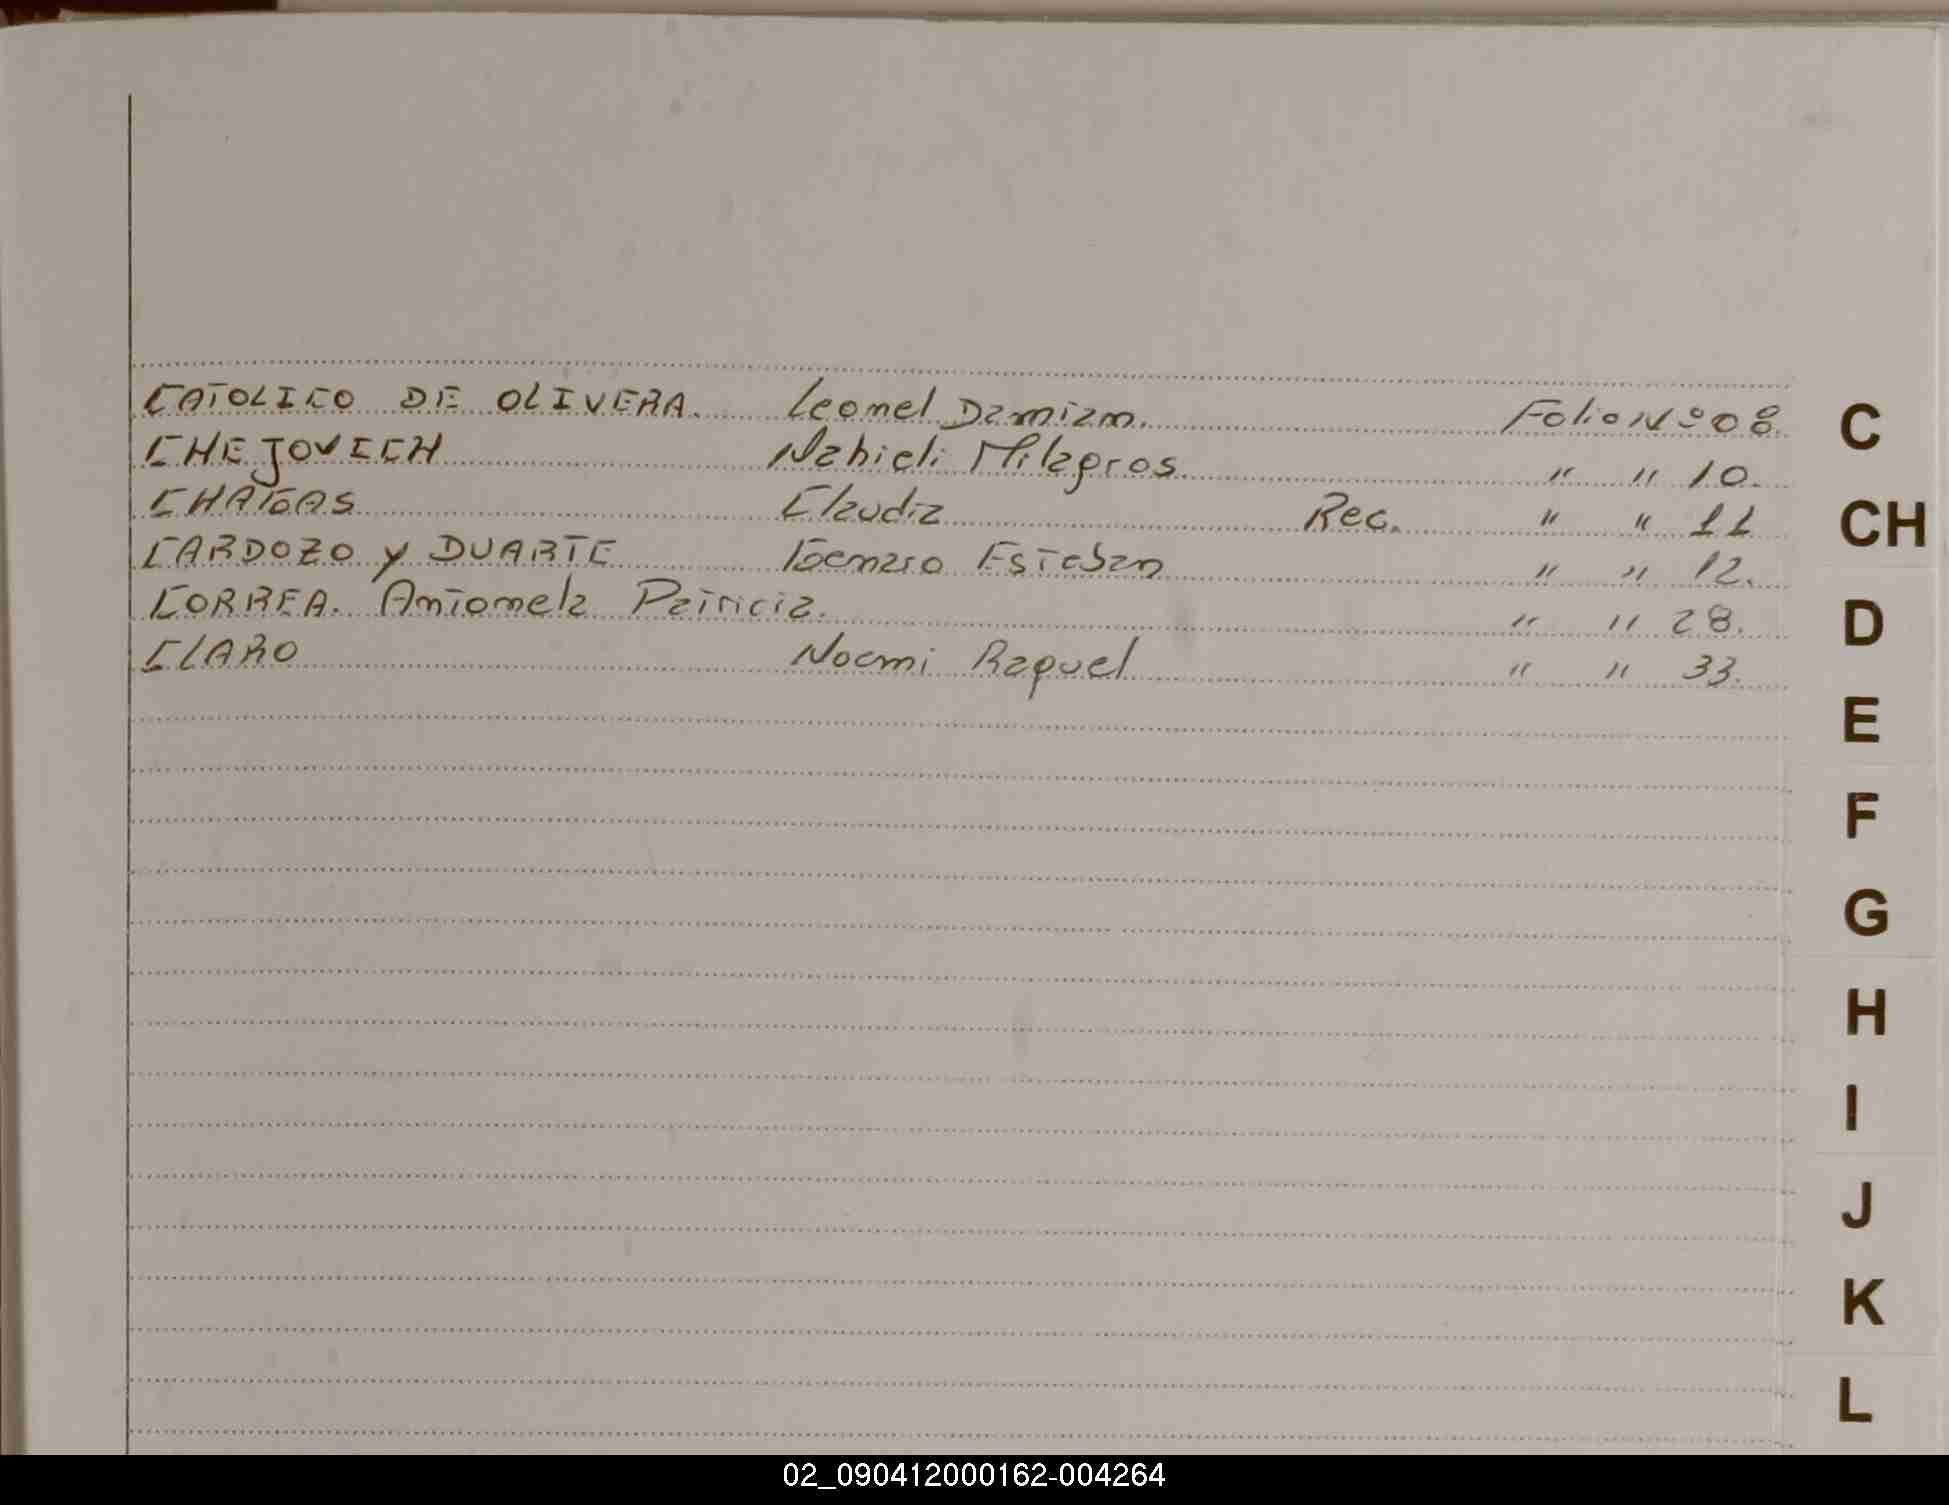 CATOLICO DE OLIVERA. Leonel Damian. Folio Nº 08.
CHEJOVICH Nahieli Milagros. " " 10.
CHAGAS Claudia Rec. " " 11
CARDOZO y DUARTE Genaro Esteban " " 12.
CORREA. Antonela Patricia. " " 28.
CLARO Noemi Raquel " " 33.
C
CH
D
E
F
G
H
I
J
K
L
02_090412000162-004264